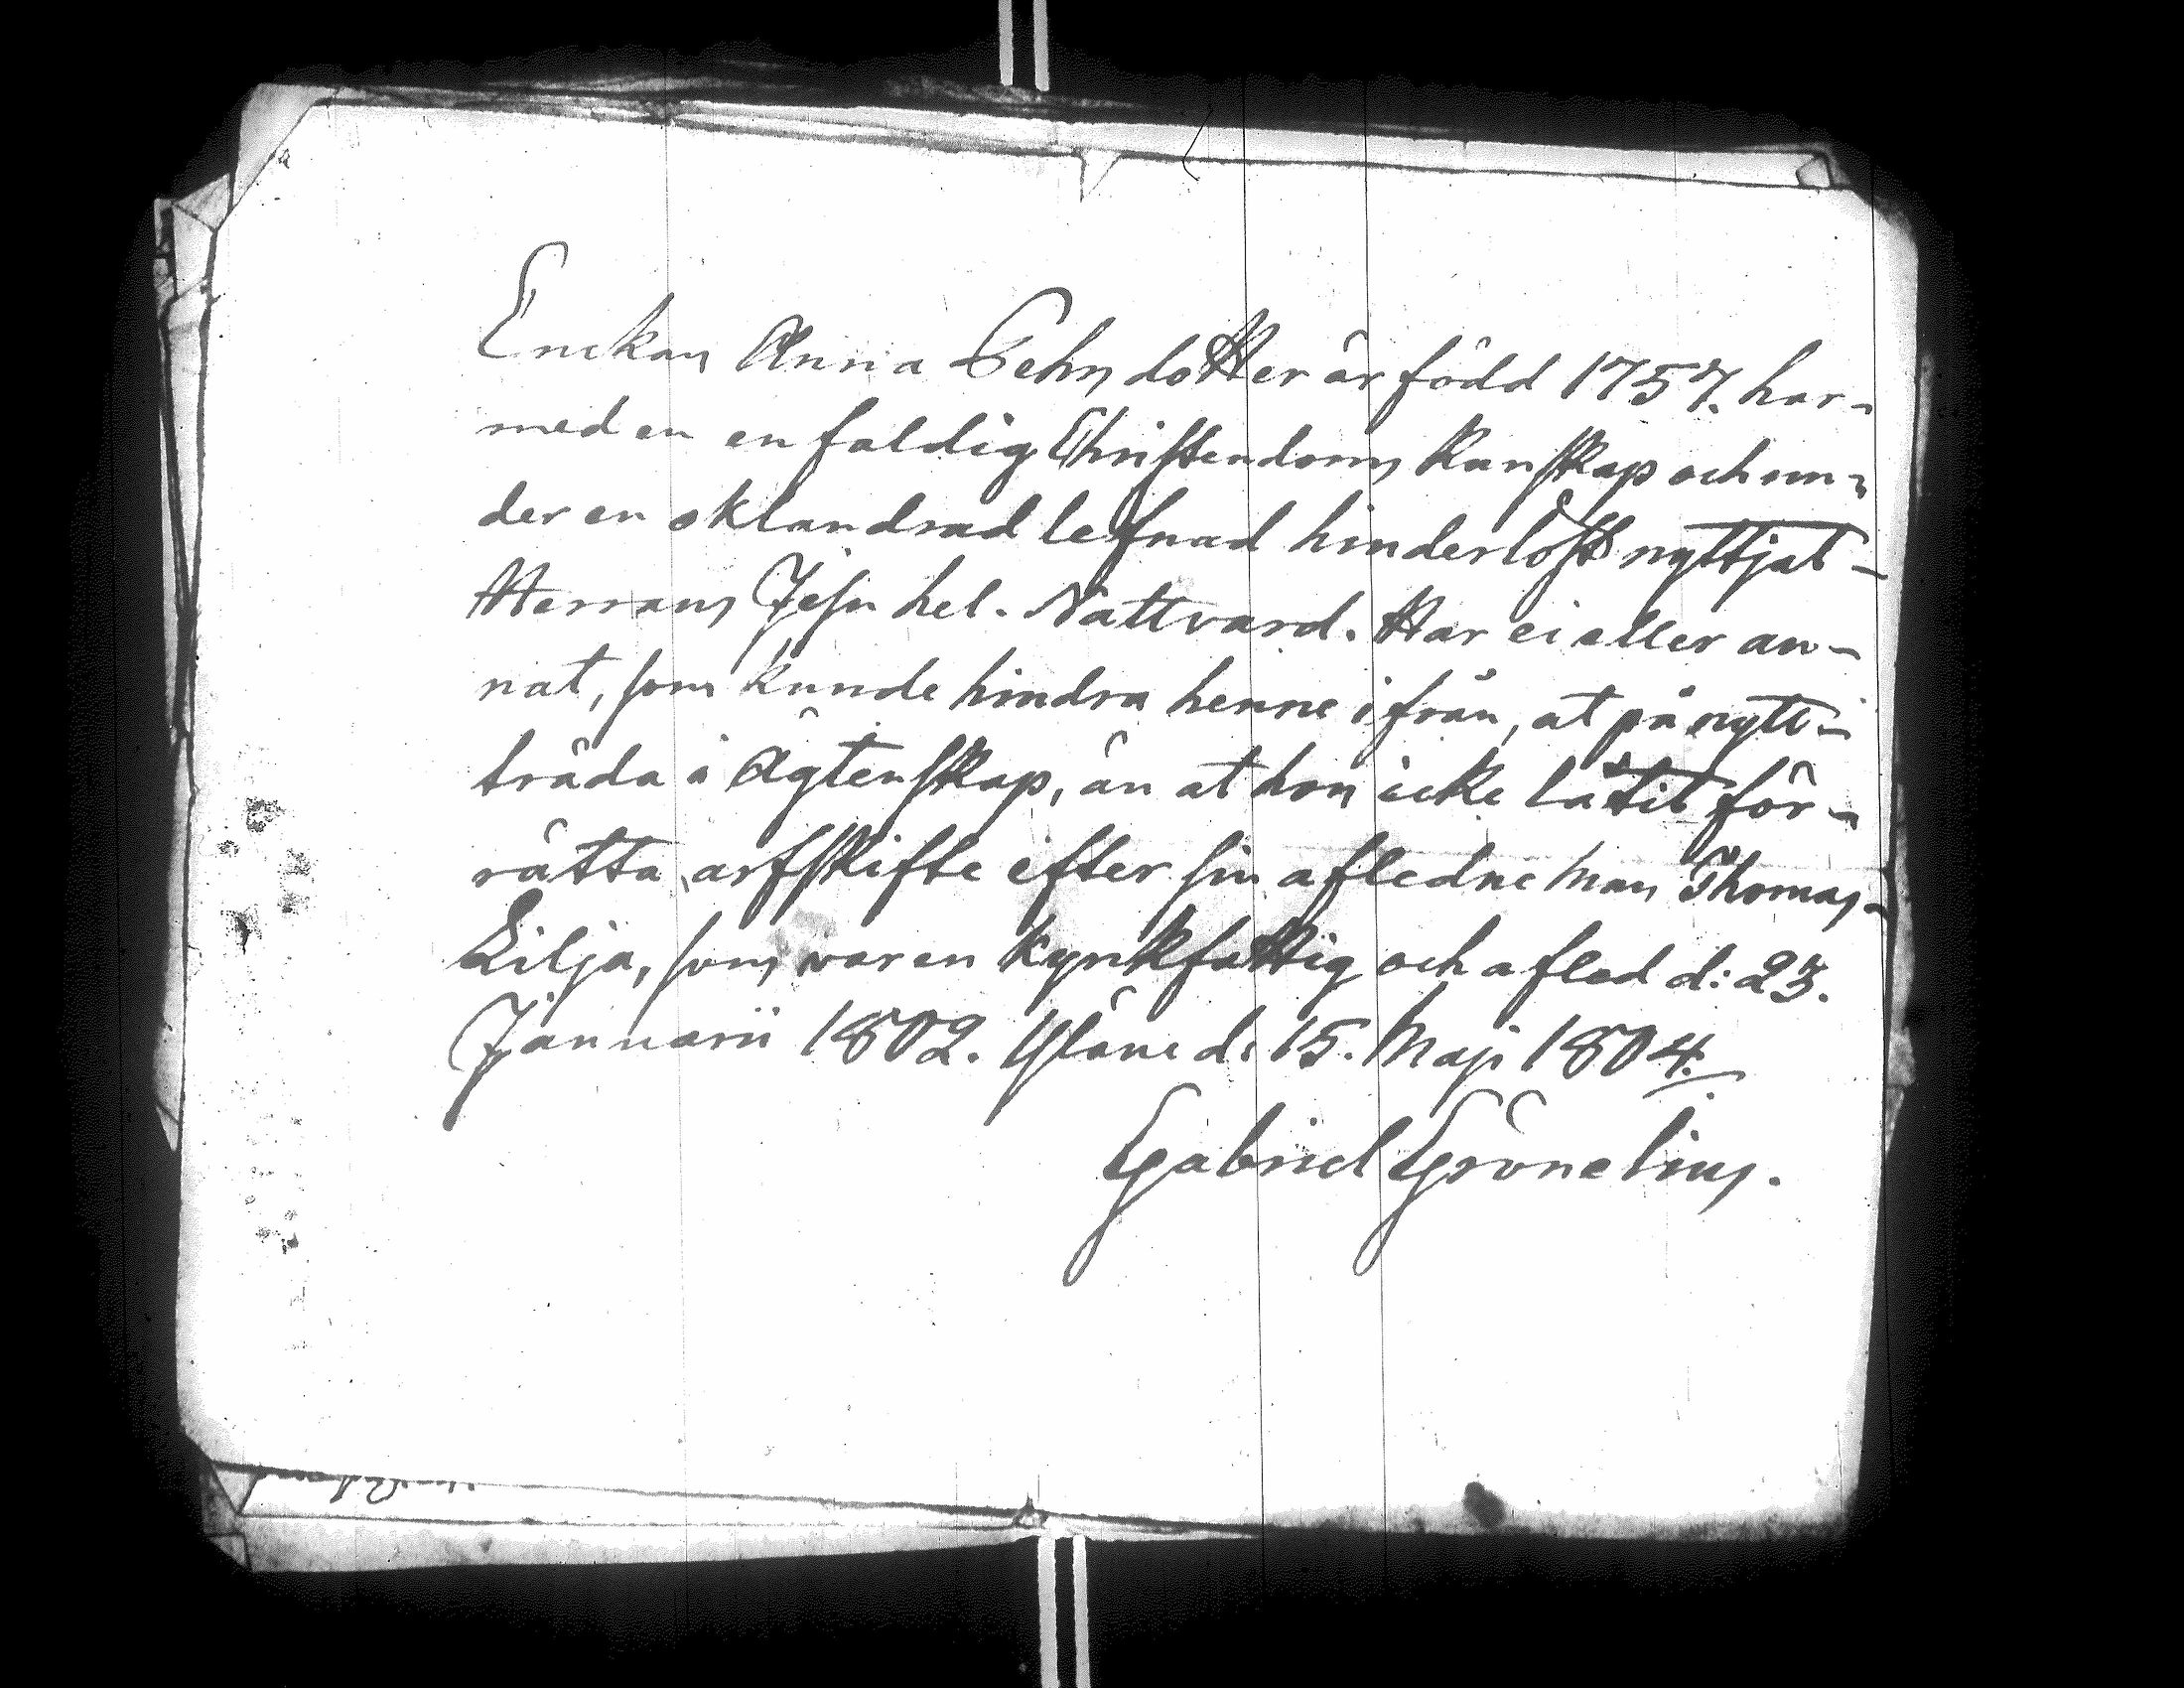 Enckan Anna Sehmdotter är född 1757. har-
med en enfaldig Christendoms Kunskap och un-
der en oklandrad lefnad hinderlöst nyttjat-
Herrans Jesu hel. Nattvard. Har ei eller an-
nat, som kunde hindra henne ifrån, at på nytt-
träda i Ägtenskap, än at hon icke låtit för-
rätta arfskifte efter sin afledne Man Thomas-
Lilja, som var en Kyrkfattig och afled d: 23.
Januarii 1802. Yläne d: 15. Maji 1804.
Gabriel Grönelius.